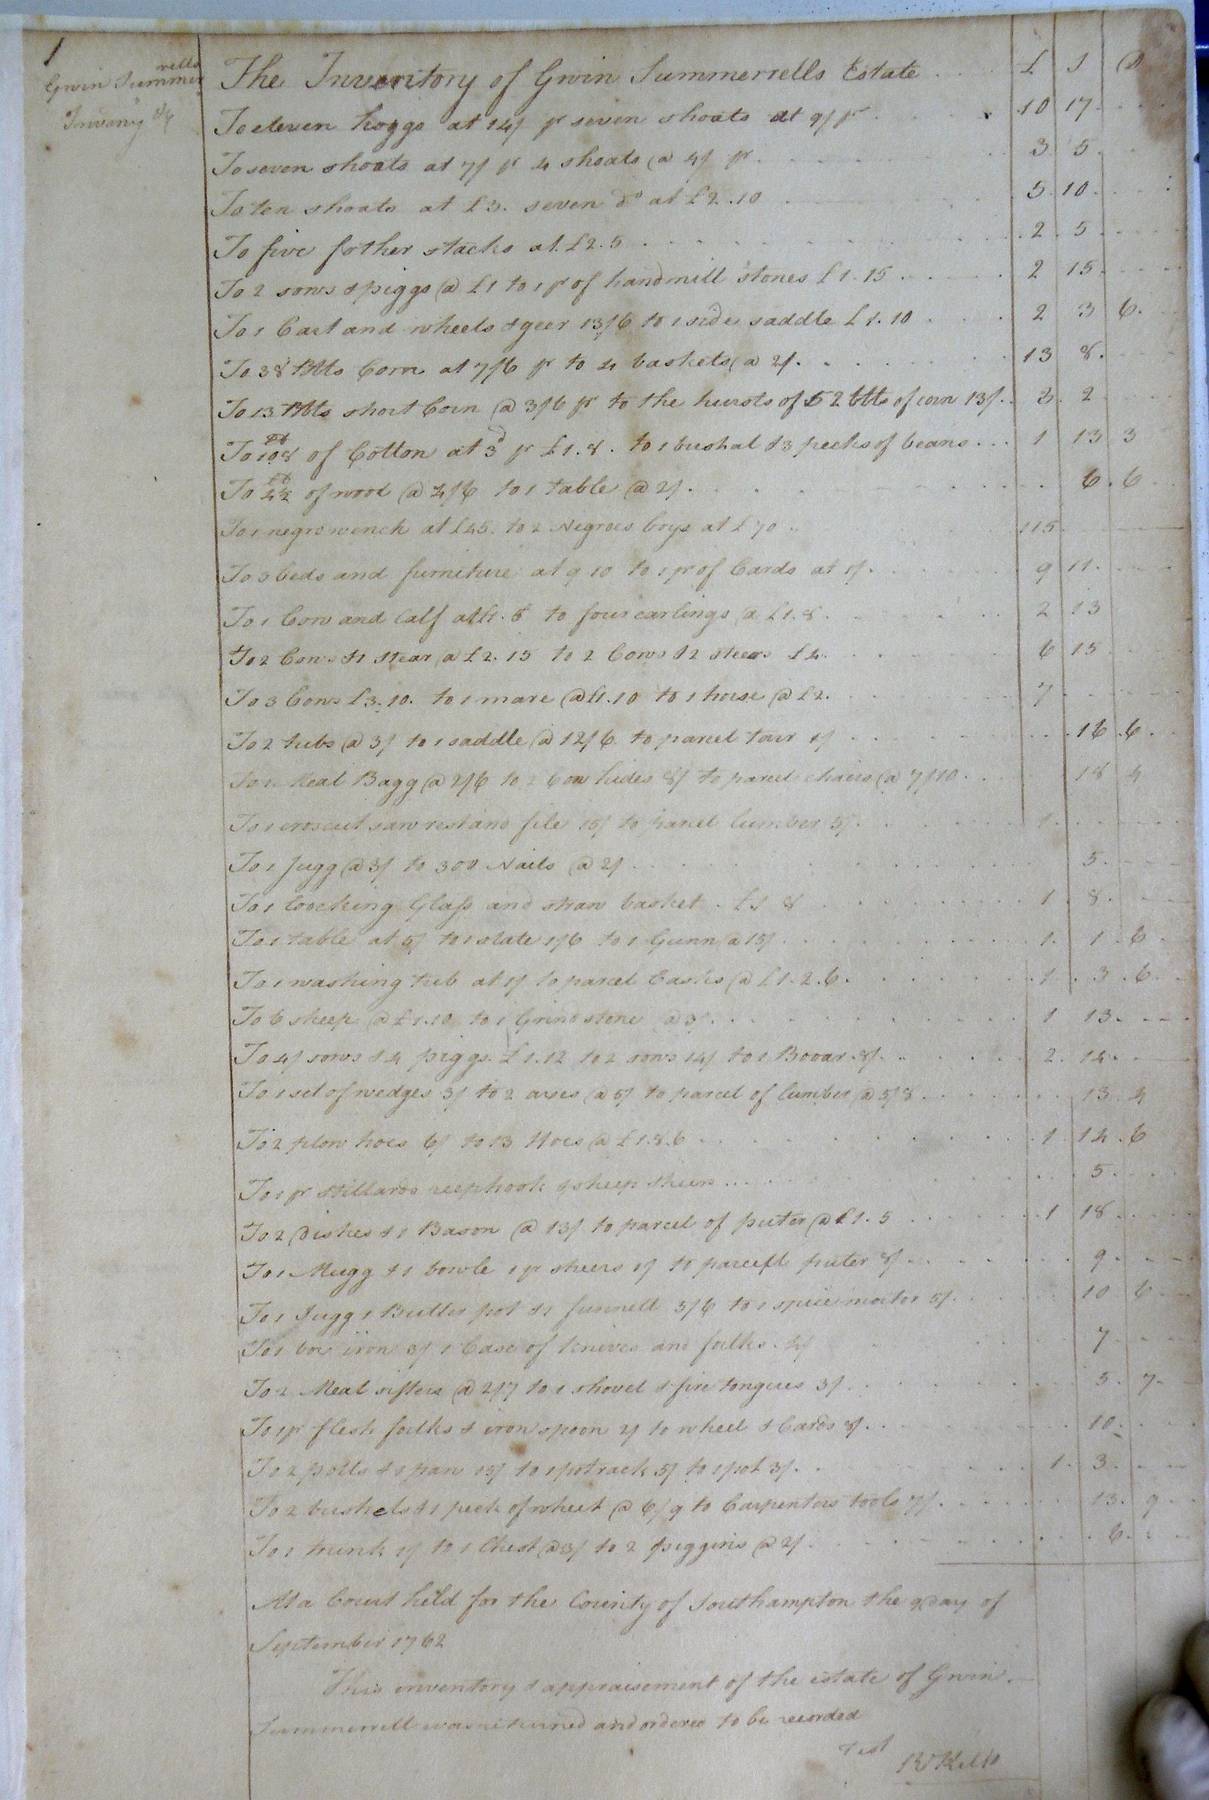 1
Gwin Summer
rells
Inventy
The Inventory of Gwin Summerrells Estate £ S D
To eleven hoggs at 14/ pr seven shoats at 9/ pr 10 17
To seven shoats at 7/ pr 4 shoats @ 4/ pr 3 5
To ten shoats at £3. seven do at £2.10 5 10
To five fother stacks at £2.5 2 5
To 2 sows & piggs @ £1 to 1 pr of handmill stones £1.15 2 15
To 1 Cart and wheels & geer 13/6 to 1 side saddle £1.10 2 3 6
To 38 Blls Corn at 7/6 pr to 4 baskets @ 2/ 13 8
To 13 Blls short Corn @ 3/6 pr to the hursts of 52 blls of corn 13/ 3 2
To 108 of Cotton at 3d pr £1.8. to 1 bushal & 3 pecks of beans 1 13 3
To of wool @ 4/6 to 1 table @ 2/ 6 6
To 1 negro wench at £45. to 2 Negroes boys at £70 115
To 3 beds and furniture at 9 10 to 1 pr of Cards at 1/ 9 11
To 1 Cow and Calf at £1.5 to four earlings @ £1.8 2 13
To 2 Cows & 1 stear @ £2.15 to 2 Cows & 2 steers £4 6 15
To 3 Cows £3.10. to 1 mare @ £1.10 to 1 horse @ £2. 7
To 2 tubs @ 3/ to 1 saddle @ 12/6 to parcel tair 1/ 16 6
To 1 Meal Bagg @ 2/6 to 2 Cow hides 8/ to parcel chairs @ 7/10 18 4
To 1 croscut saw rest and file 15/ to parcel lumber 5/ 1
To 1 Jugg @ 3/ to 300 Nails @ 2/ 5
To 1 loocking Glass and straw basket £1 8 1 8
To 1 table at 5/ to 1 slate 1/6 to 1 Gunn @ 15/ 1 1 6
To 1 washing tub at 1/ to parcel Casks @ £1.2.6. 1 3 6
To 6 sheep @ £1.10 to 1 Grindstone @ 3/ 1 13
To 4/ sows & 4 piggs £1.12 to 2 sows 14/ to 1 Booar 8/ 2 14
To 1 set of wedges 3/ to 2 axes @ 5/ to parcel of lumber @ 5/8 13 4
To 2 plow hoes 6/ to 13 Hoes @ £1.8.6 1 14 6
To 1 pr stillards reephook & sheep sheers 5
To 2 Dishes & 1 Bason @ 13/ to parcel of puter @ £1.5 1 18
To 1 Mugg & 1 bowle 1 pr sheers 1/ to parcell puter 8/ 9
To 1 Jugg 1 Butter pot & 1 funnell 5/6 to 1 spice mortor 5/ 10 6
To 1 box iron 3/ 1 Case of knives and folks 4/ 7
To 2 Meal sifters @ 2/7 to 1 shovel & fire tongues 3/ 5 7
To 1 pr flesh folks & iron spoon 2/ to wheel & Cards 8/ 10
To 2 potts & 1 pan 15/ to 1 potrack 5/ to 1 pot 3/ 1 3
To 2 bushels & 1 peck of wheet @ 6/9 to Carpenters tools 7/ 13 9
To 1 trunk 1/ to 1 Chest @ 3/ to 2 piggins @ 2/ 6
At a Court held for the County of Southampton the 9 day of
September 1762
This inventory & appraisement of the estate of Gwin
Summerrell was returned and ordered to be recorded
Test
R Kello